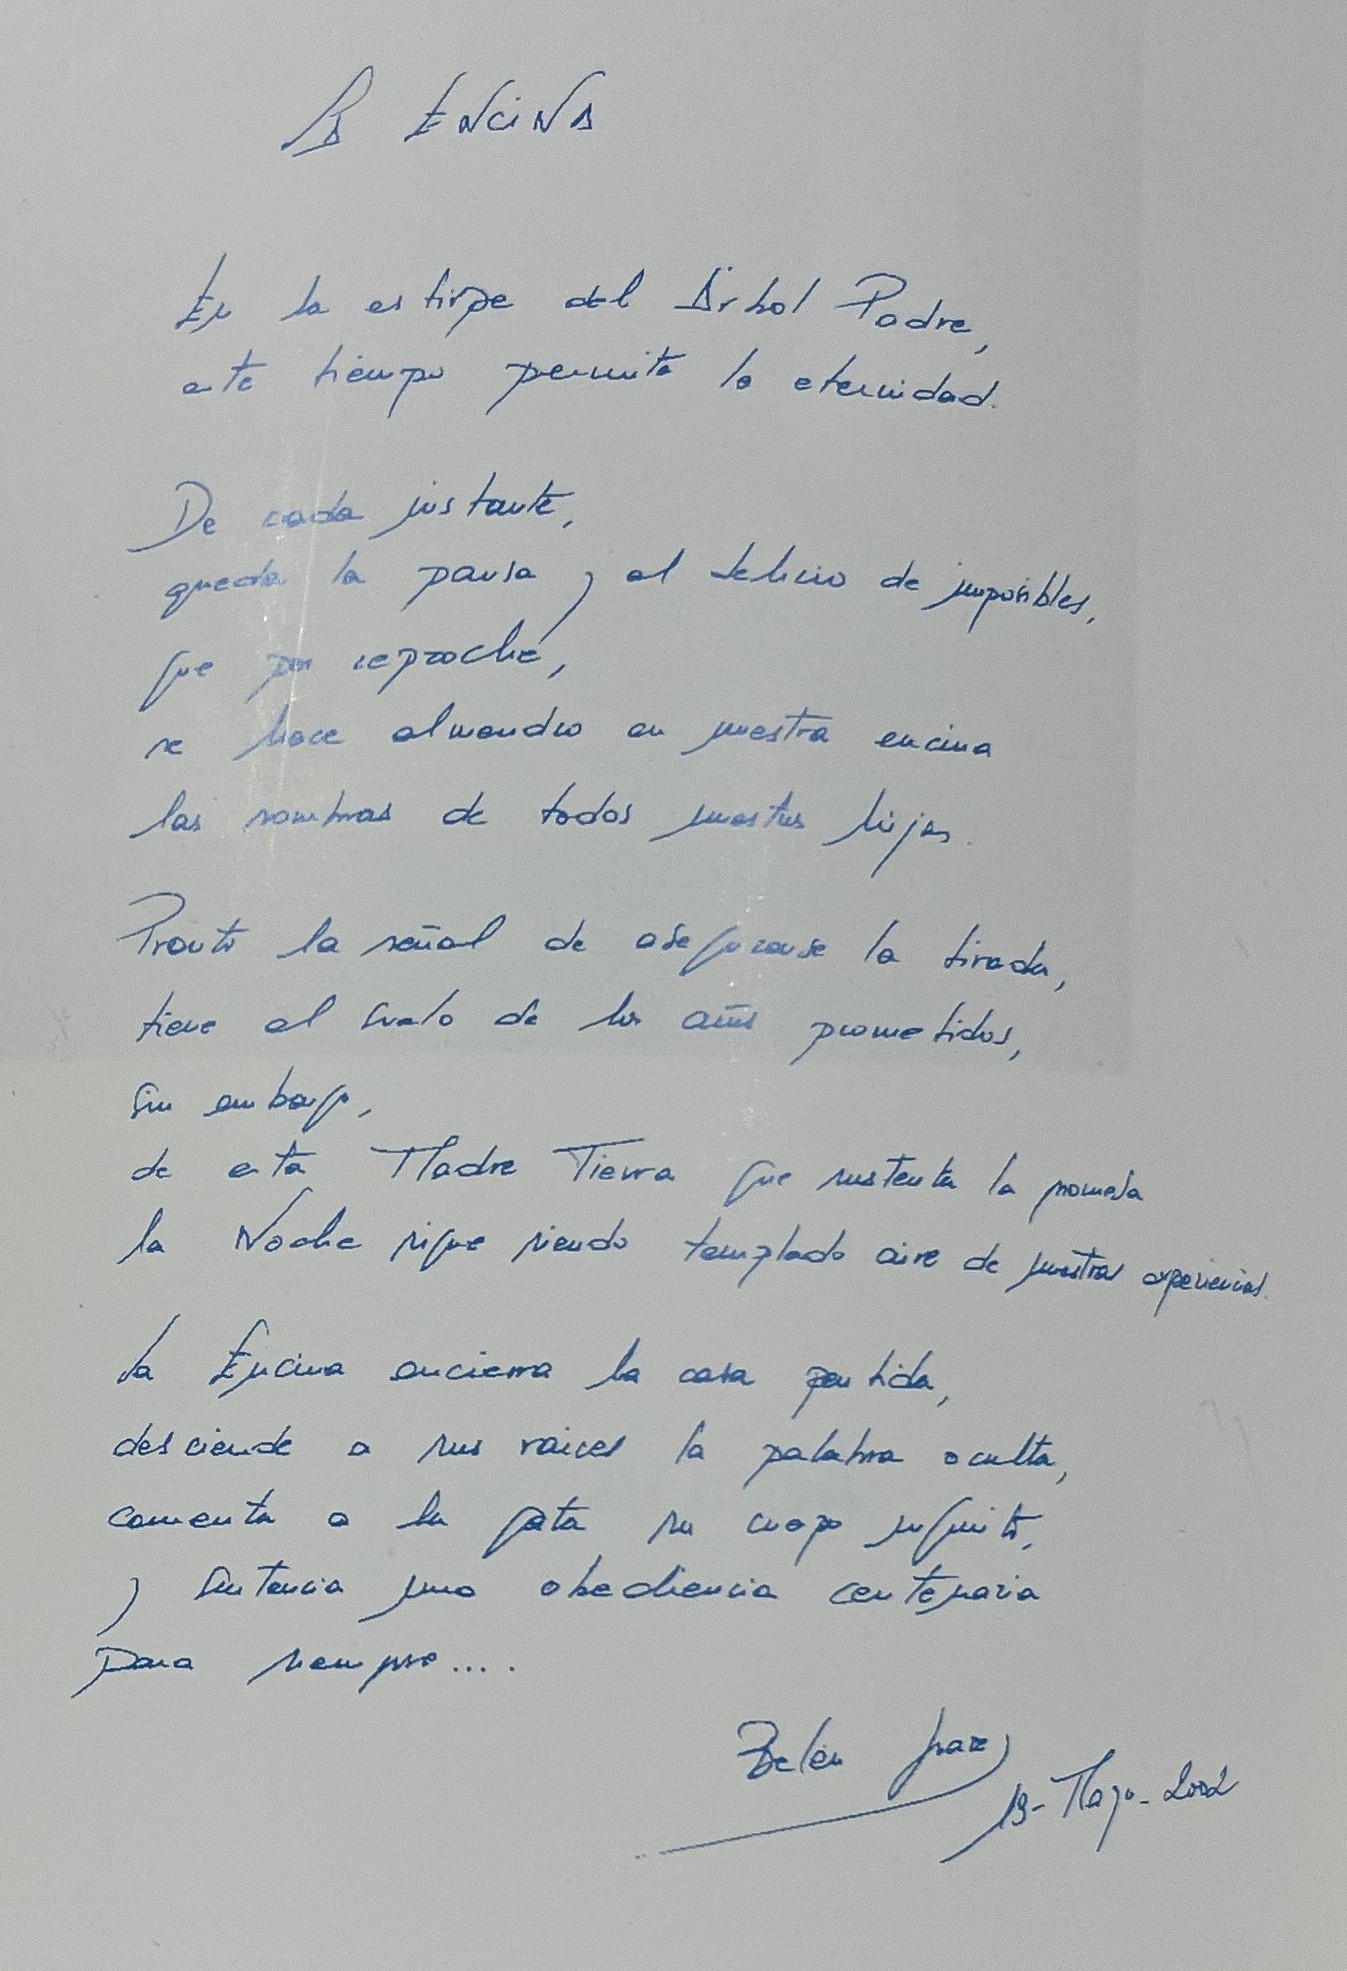 La ENCINA
En la estirpe del Árbol Padre,
este tiempo permite la eternidad.
De cada instante,
queda la pausa y el delirio de imposibles,
que por reproche,
se hace almendro en nuestra encina
las sombras de todos nuestros hijos.
Pronto la señal de asegurarse la tirada,
tiene el suelo de los años prometidos,
sin embargo,
de esta Madre Tierra que sustenta la promesa
la Noche sigue siendo templado aire de nuestras experiencias.
La Encina encierra la casa perdida,
desciende a sus raices la palabra oculta,
comenta a la gata su cuerpo infinito,
y sentencia una obediencia centenaria
para siempre....
Belén Juarez
19-Mayo-2002